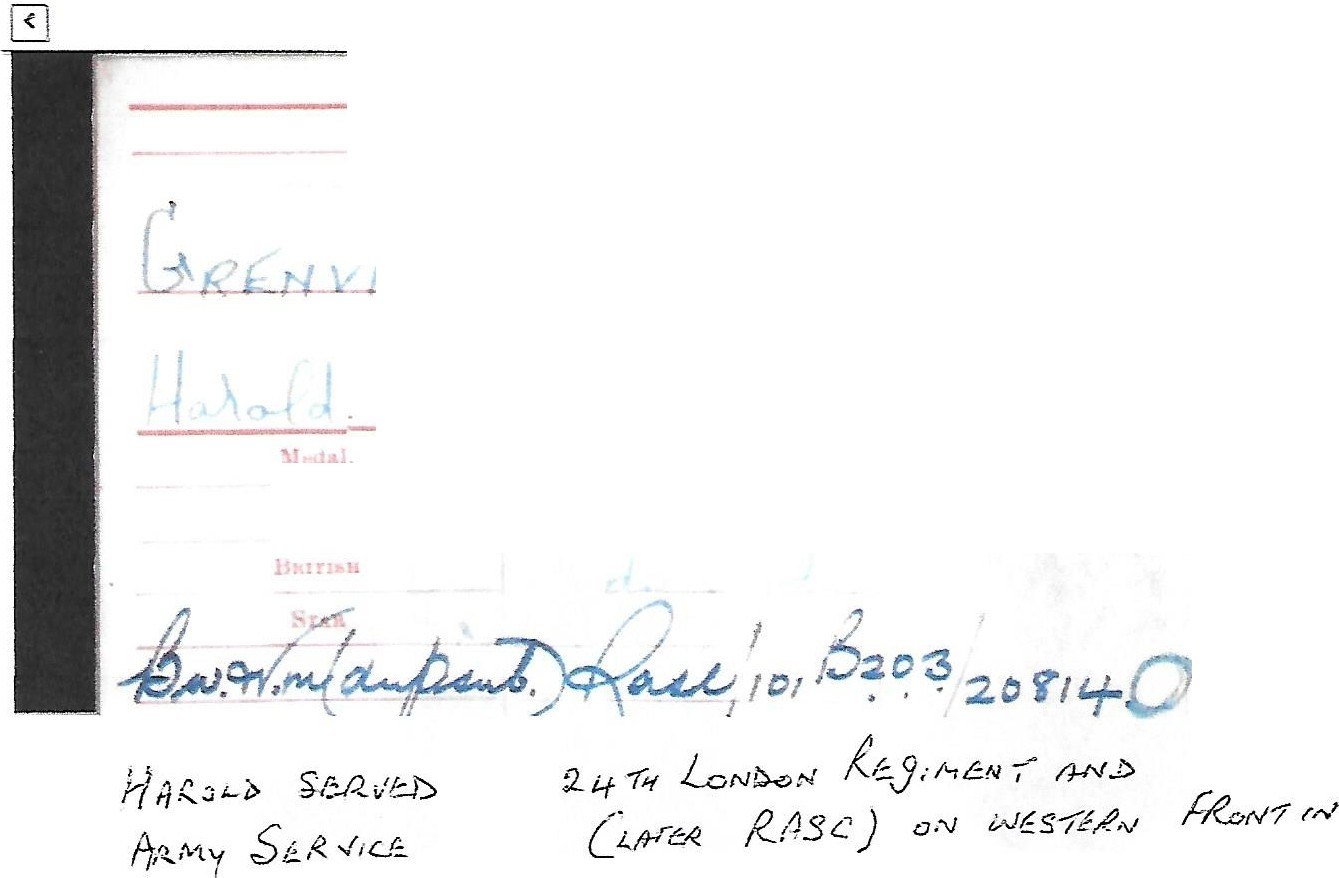 GRENVI
Harold.
Medal.
BRITISH
STAR
B.W.V.M (dupisut.) Rasc/101, B203/20814
HAROLD SERVED 24TH LONDON REGIMENT AND
ARMY SERVICE (LATER RASC) ON WESTERN FRONT IN